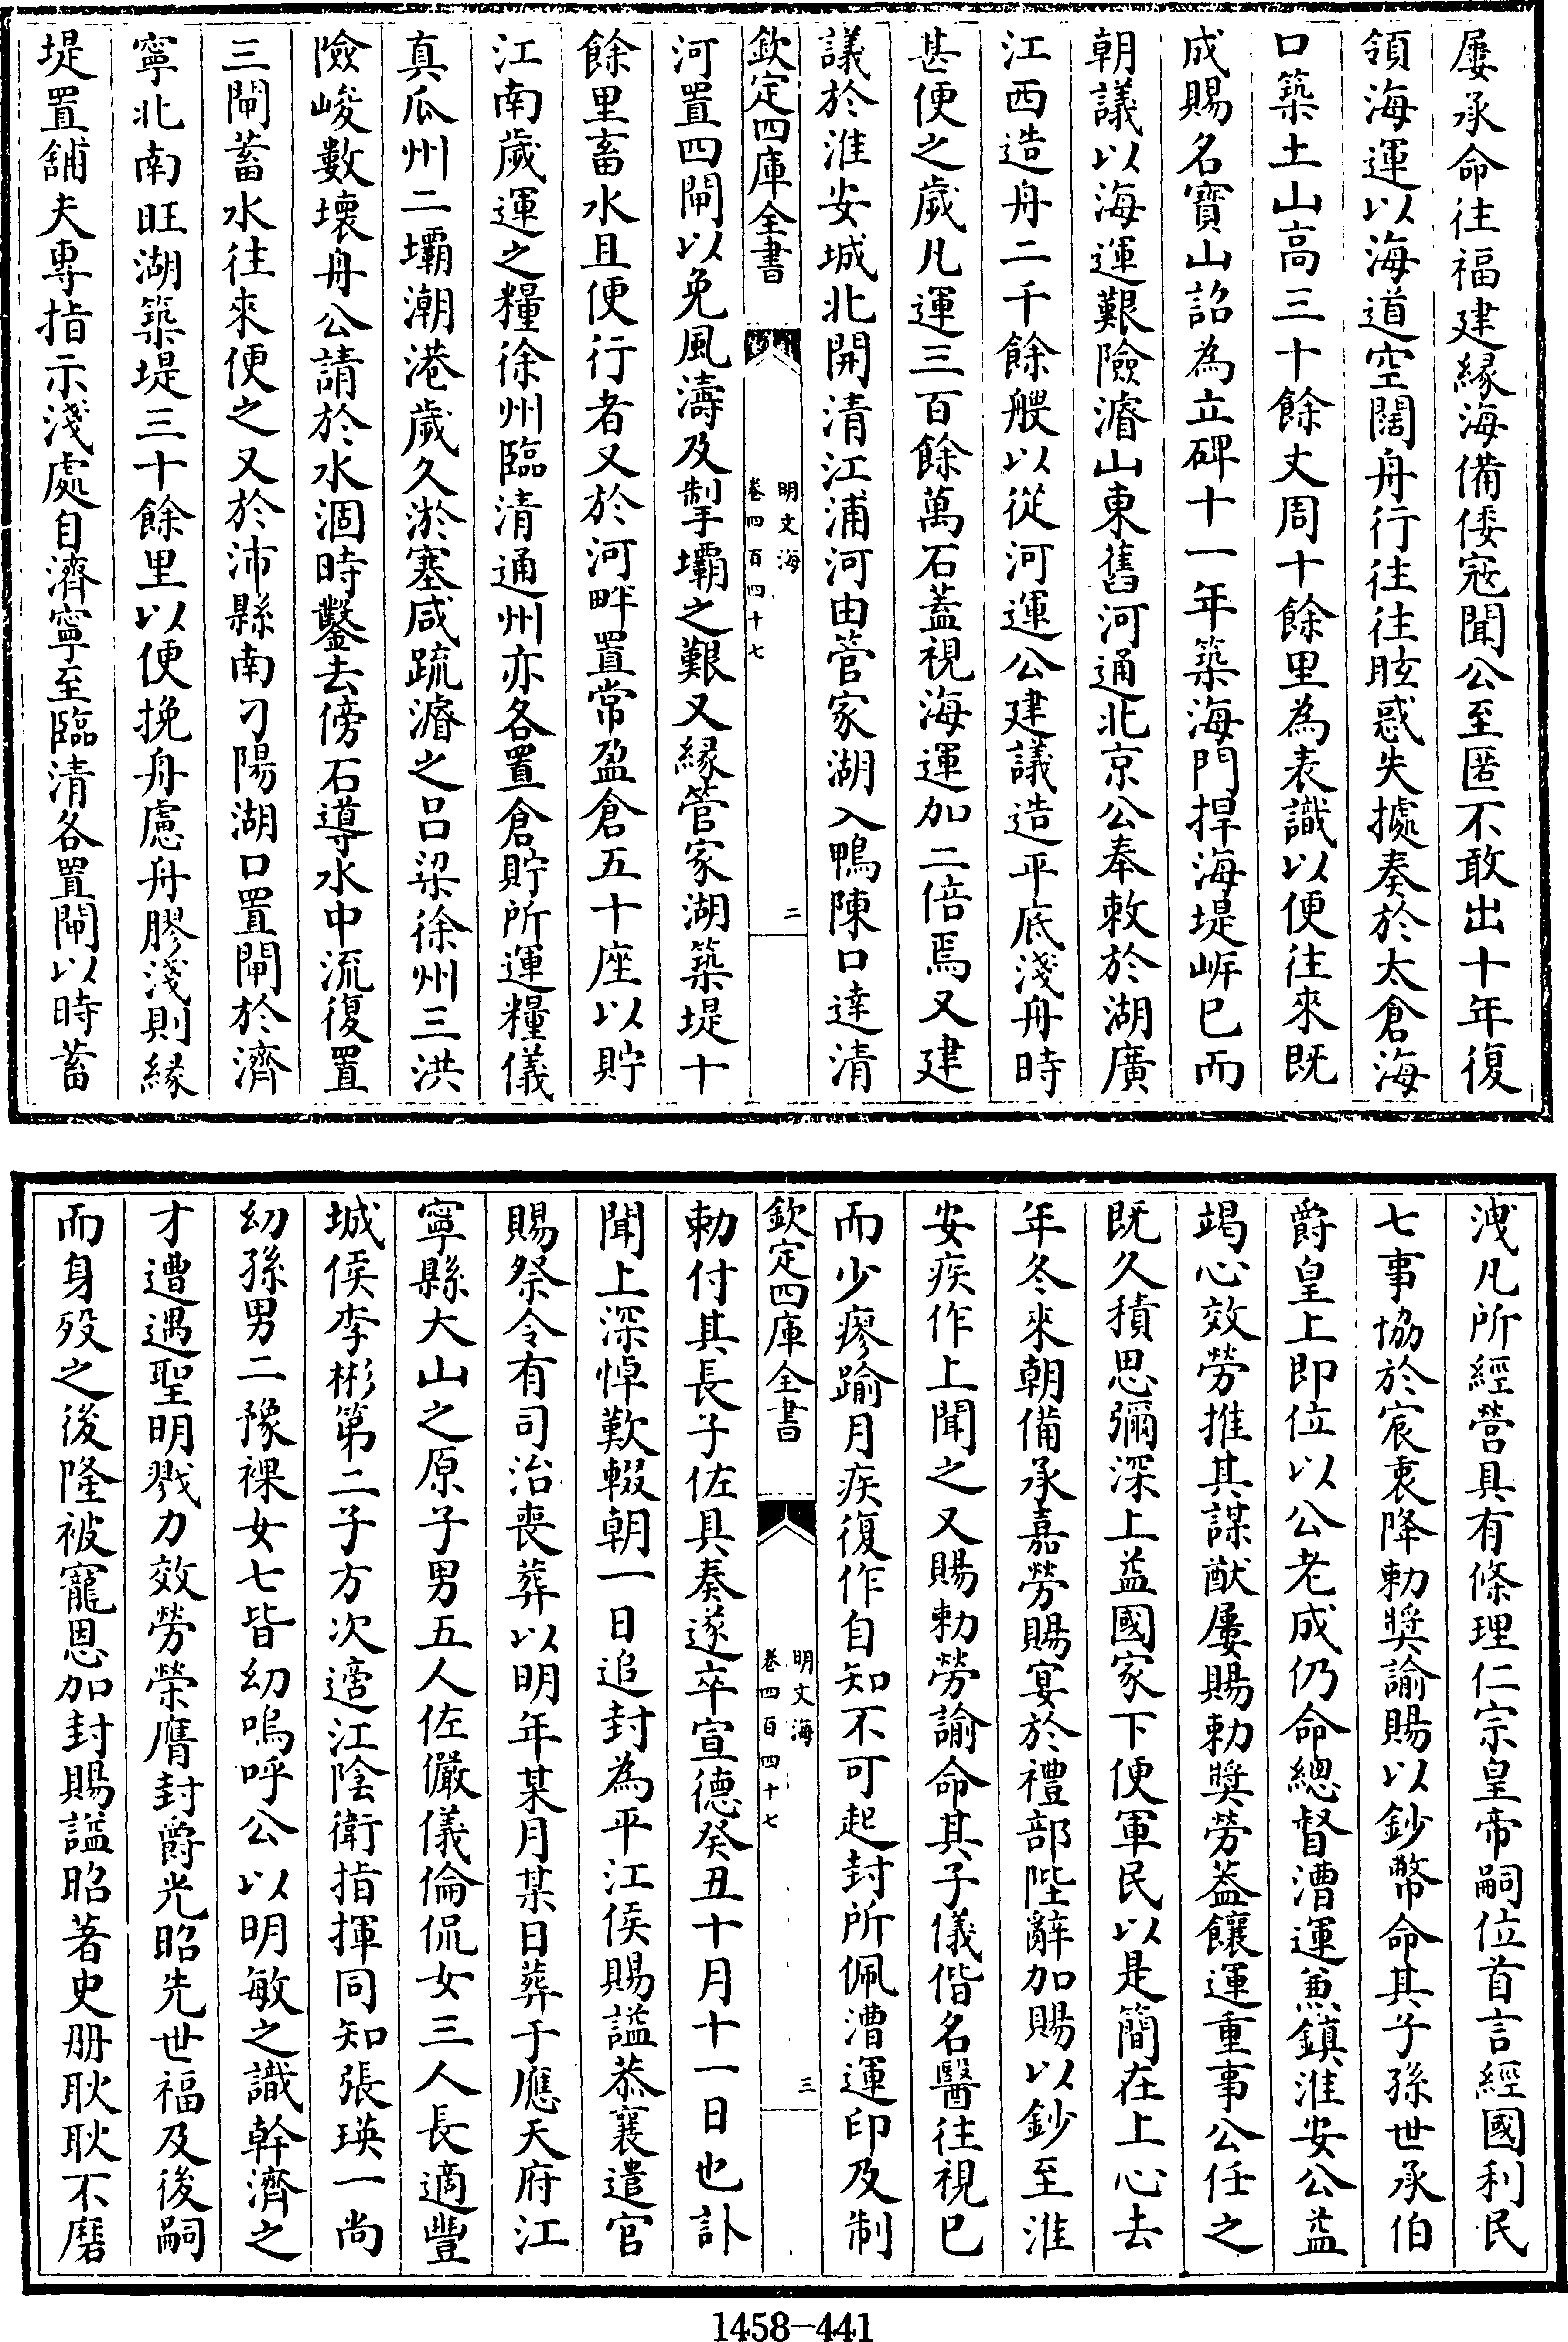 屢承命往福建緣海備倭冦聞公至匿不敢出十年復
領海運以海道空闊舟行往往眩惑失據奏於太倉海
口築土山高三十餘丈周十餘里為表識以便往來既
成賜名寶山詔為立碑十一年築海門捍海堤岍已而
朝議以海運艱險濬山東舊河通北京公奉敕於湖廣
江西造舟二千餘艘以從河運公建議造平底淺舟時
甚便之歲凡運三百餘萬石蓋視海運加二倍焉又建
議於淮安城北開清江浦河由管家湖入鴨陳口達清
欽定四庫全書
明文海
卷四百四十七
二
河置四閘以免風濤及掣壩之艱又緣管家湖築堤十
餘里畜水且便行者又於河畔置常盈倉五十座以貯
江南歲運之糧徐州臨清通州亦各置倉貯所運糧儀
真瓜州二壩潮港歲久淤塞咸疏濬之吕梁徐州三洪
險峻數壞舟公請於水涸時鑿去傍石導水中流復置
三閘蓄水往來便之又於沛縣南刁陽湖口置閘於濟
寧北南旺湖築堤三十餘里以便挽舟慮舟膠淺則緣
堤置舖夫專指示淺處自濟寧至臨清各置閘以時蓄
洩凡所經營具有條理仁宗皇帝嗣位首言經國利民
七事恊於宸衷降勅奬諭賜以鈔幣命其子孫世承伯
爵皇上即位以公老成仍命總督漕運兼鎮淮安公益
竭心效勞推其謀猷屢賜勅奬勞蓋饟運重事公任之
既久積思彌深上益國家下便軍民以是簡在上心去
年冬來朝備承嘉勞賜宴於禮部陛辭加賜以鈔至淮
安疾作上聞之又賜勅勞諭命其子儀偕名醫往視已
而少瘳踰月疾復作自知不可起封所佩漕運印及制
欽定四庫全書
明文海
卷四百四十七
三
勅付其長子佐具奏遂卒宣德癸丑十月十一日也訃
聞上深悼歎輟朝一日追封為平江侯賜謚恭襄遣官
賜祭令有司治喪葬以明年某月某日葬于應天府江
寧縣大山之原子男五人佐儼儀倫侃女三人長適豐
城侯李彬第二子方次適江陰衛指揮同知張瑛一尚
幼孫男二豫祼女七皆幼嗚呼公以明敏之識幹濟之
才遭遇聖明戮力效勞榮膺封爵光昭先世福及後嗣
而身歿之後隆被寵恩加封賜謚昭著史册耿耿不磨
1458-441